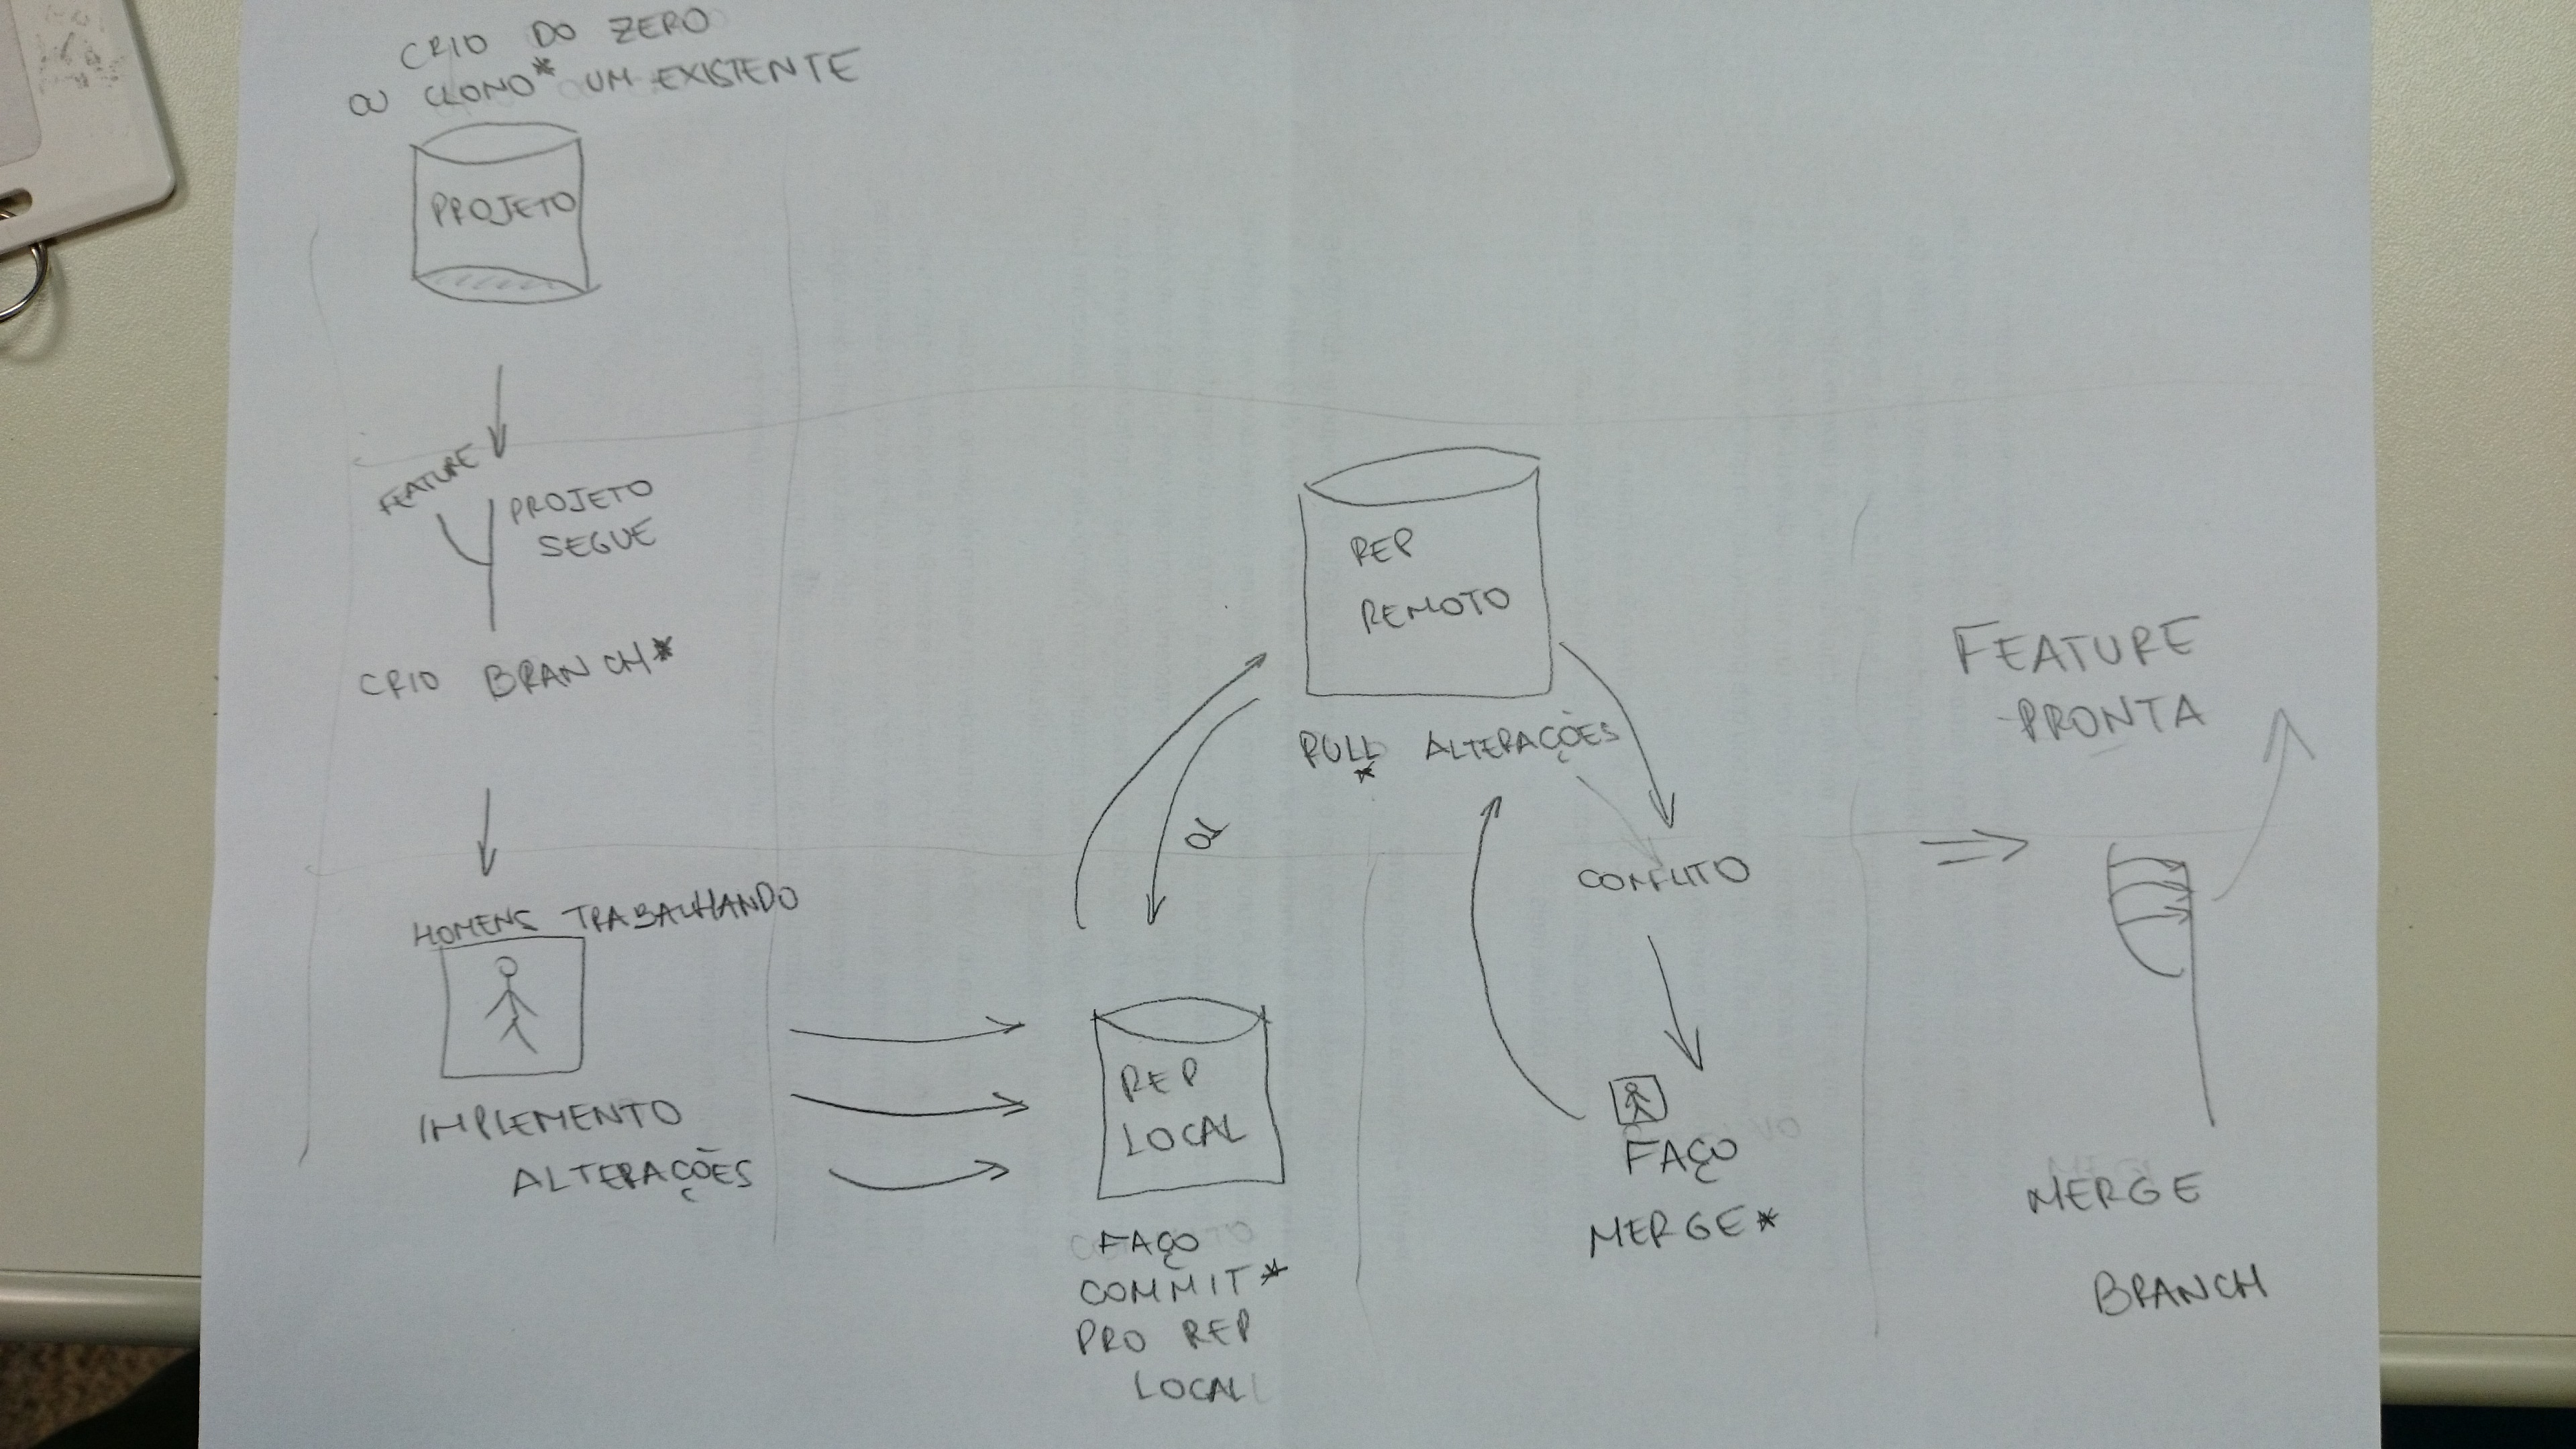 CRIO DO ZERO
OU CLONO* UM EXISTENTE
PROJETO
FEATURE
PROJETO
SEGUE
CRIO BRANCH*
HOMENS TRABALHANDO
IMPLEMENTO
ALTERAÇÕES
REP
LOCAL
FAÇO
COMMIT*
PRO REP
LOCAL
REP
REMOTO
PULL* ALTERAÇÕES
CONFLITO
FAÇO
MERGE*
FEATURE
PRONTA
MERGE
BRANCH